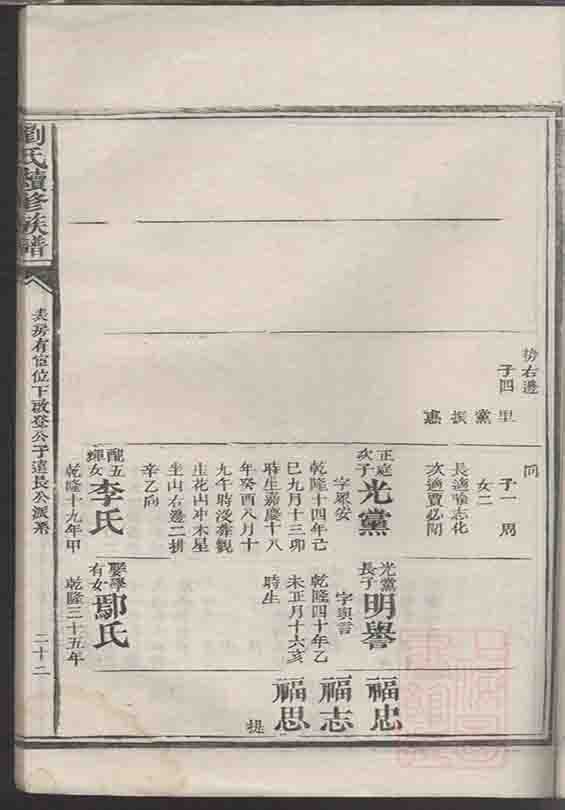 塝右邊
子四
里
黨
振
惠
向
子一周
女二
長適喻志化
次適賈必閣
正庭
次子
光黨
字衆安
乾隆十四年己
巳九月十三卯
時生嘉慶十八
年癸酉八月十
九午時没葬觀
庄花山冲木星
坐山右邊二排
辛乙向
配五
輝女
李氏
乾隆十九年甲
光黨
長子
明譽
字與言
乾隆四十年乙
未正月十六亥
時生
娶學
有女
鄢氏
乾隆三十五年
福忠
福志
福思
提
劉氏續修族譜
表房有宦位下啟登公子達長公派系
二十二